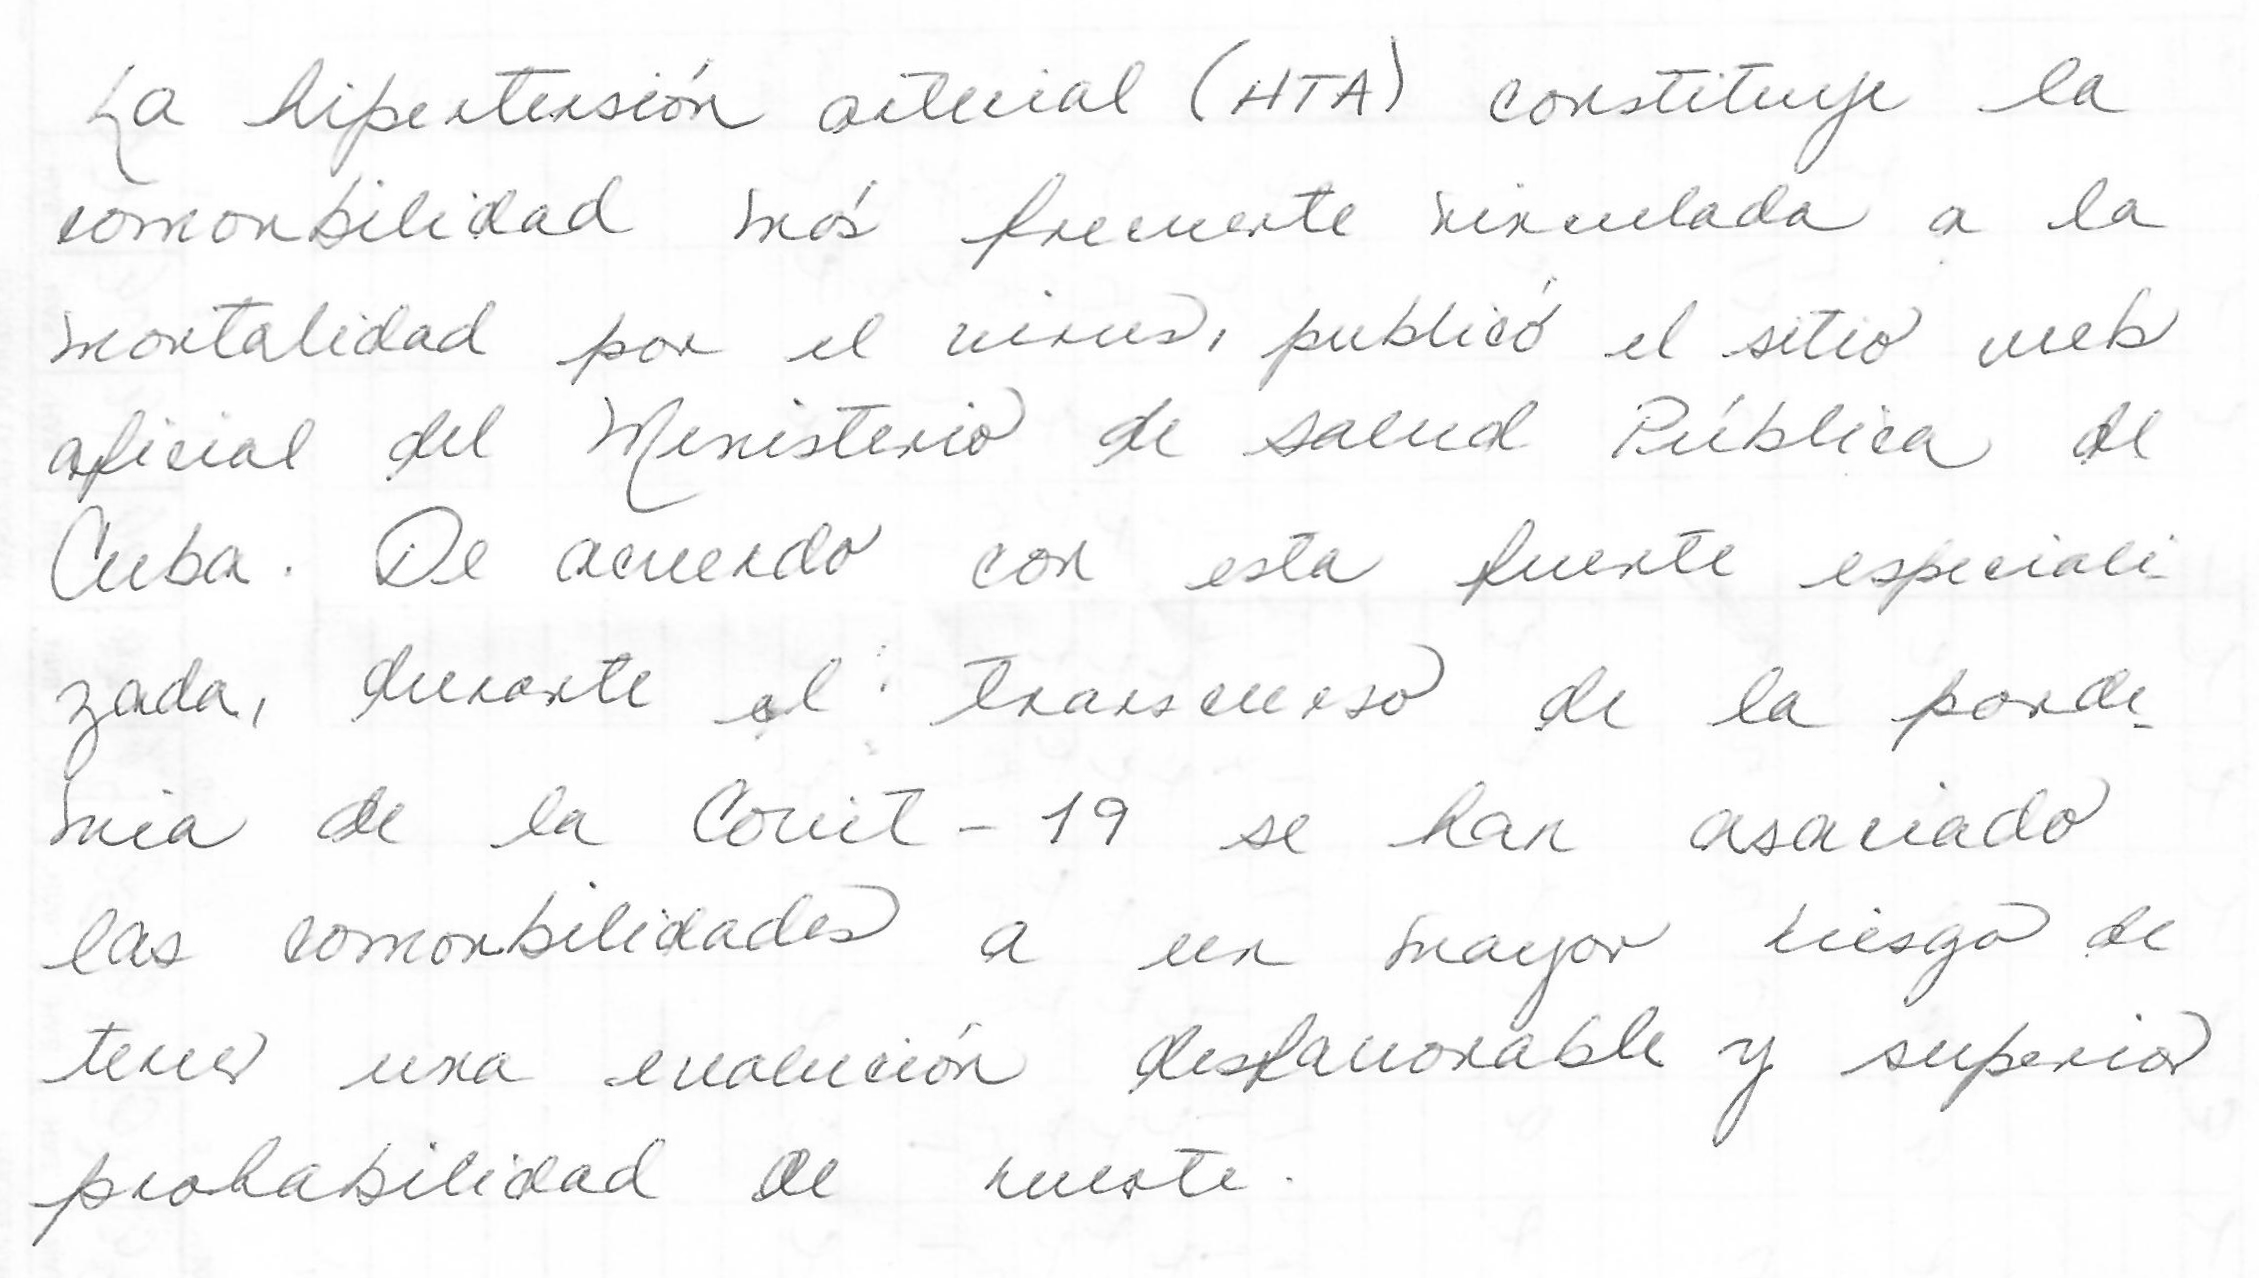 La hipertensión arterial (HTA) constituye la
comorbilidad más frecuente vinculada a la
mortalidad por el virus, publicó el sitio web
oficial del Ministerio de salud Pública de
Cuba. De acuerdo con esta fuente especiali-
zada, durante el transcurso de la pande-
mia de la Covit-19 se han asociado
las comorbilidades a un mayor riesgo de
tener una evolución desfavorable y superior
probabilidad de muerte.